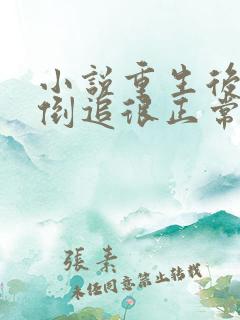 小說重生後
倒追很正常
張素
未經同意禁止轉載